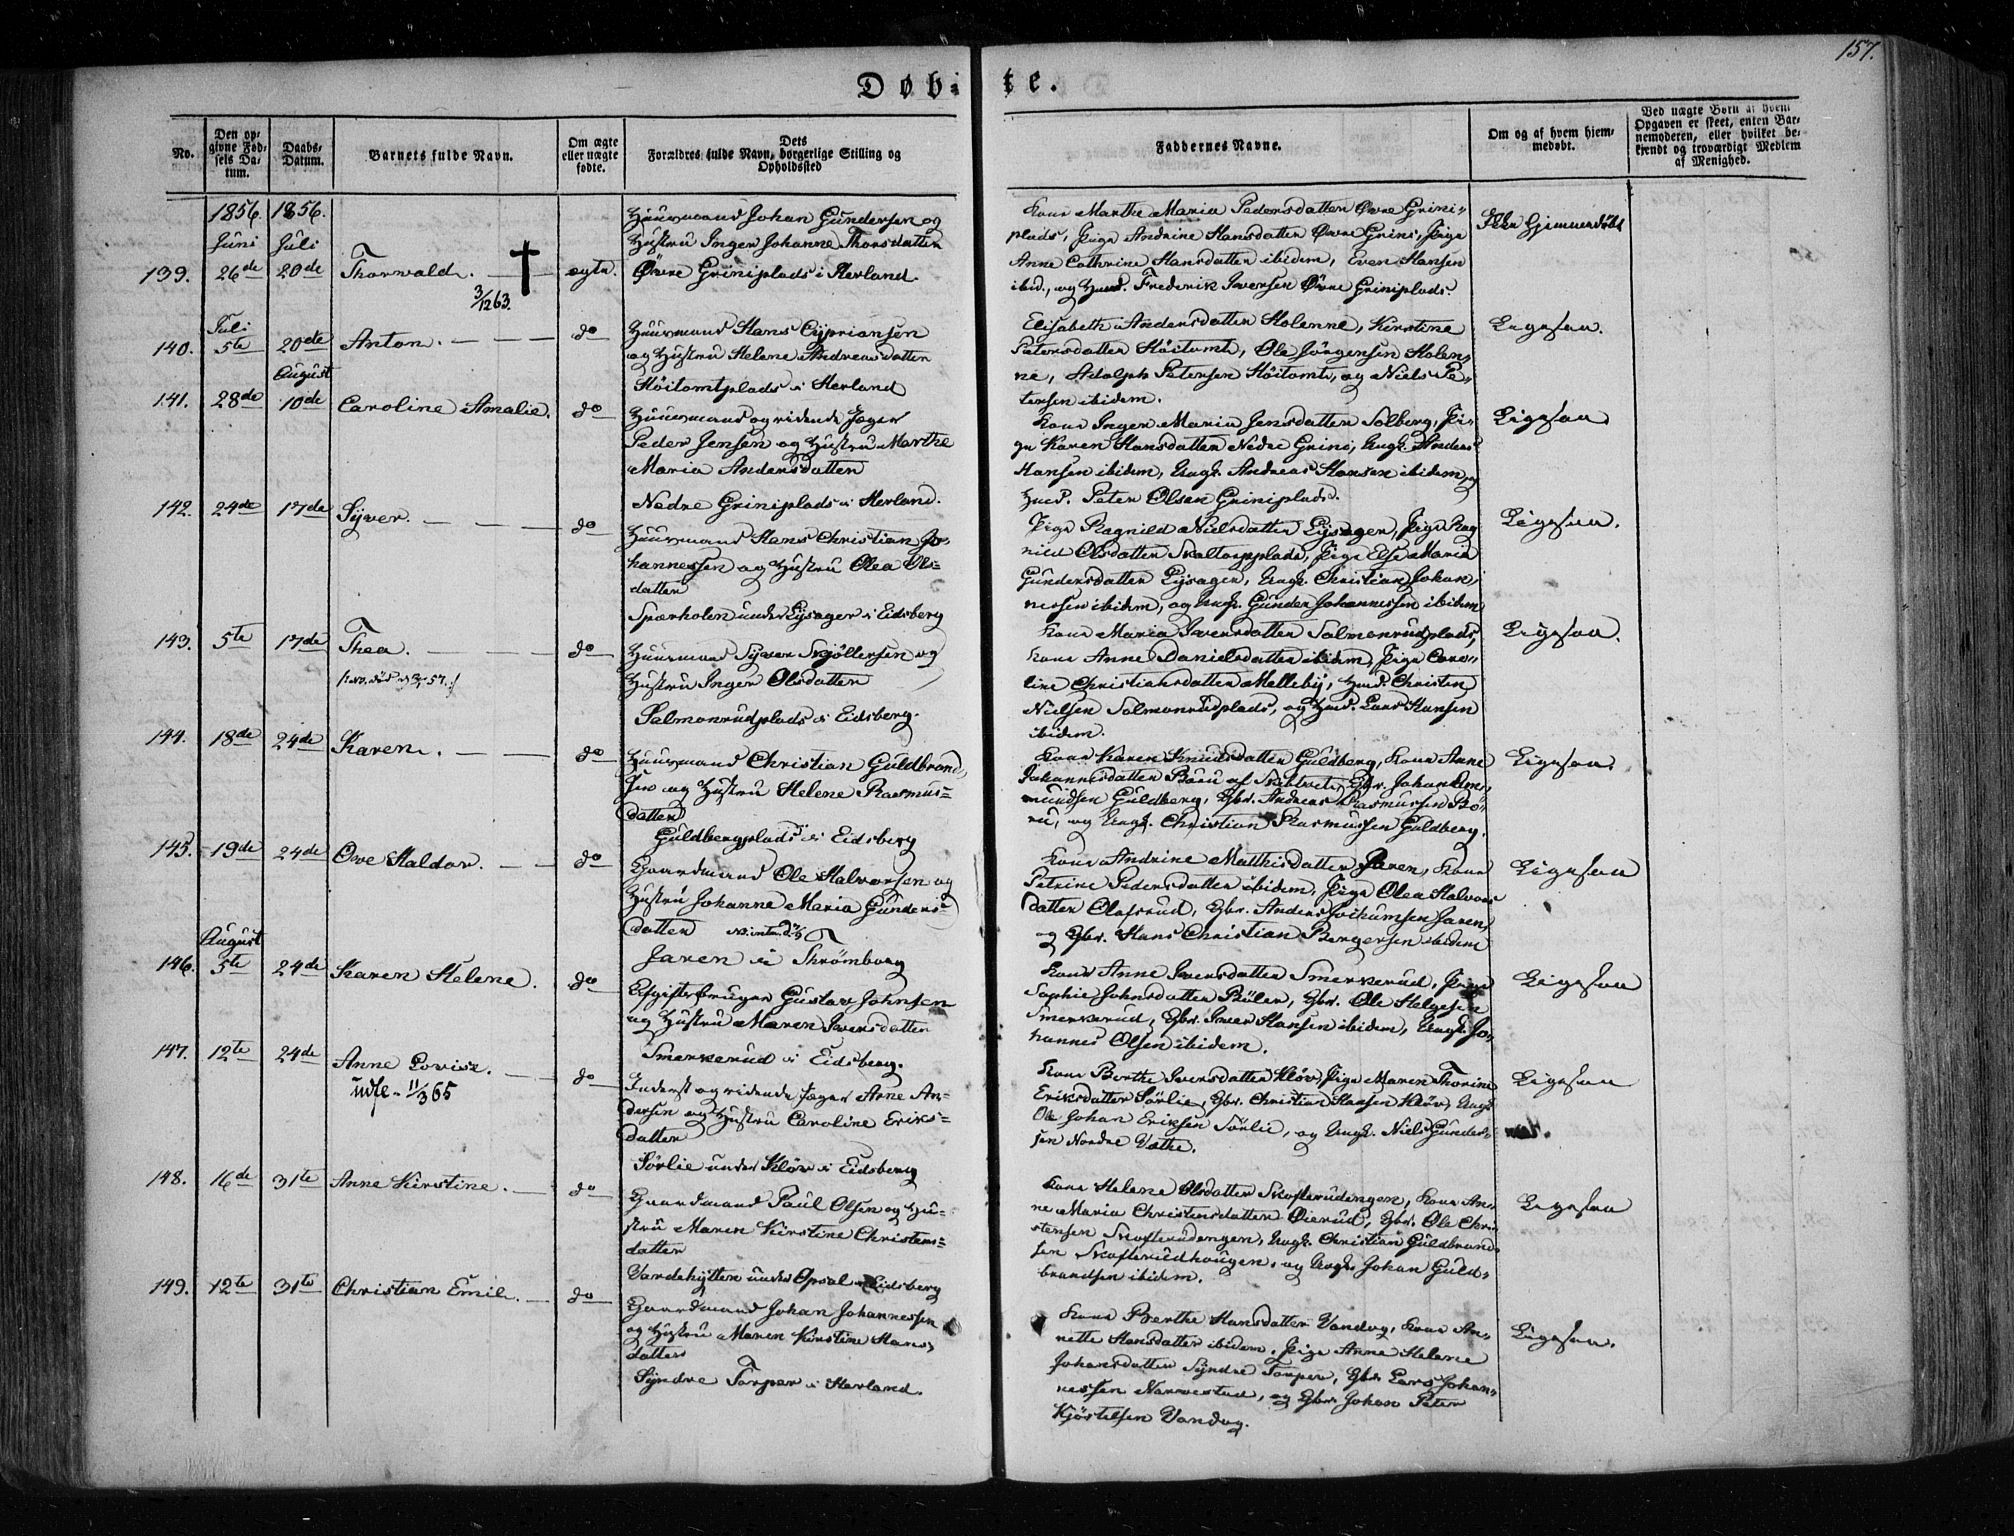 157.
Døb-
te.
No.
Den op-
givne Fød-
sels Da-
tum.
Daabs-
Datum.
Barnets fulde Navn.
Om ægte
eller uægte
fødte.
Dets
Forældres fulde Navn, borgerlige Stilling og
Opholdssted
Faddernes Navne.
Om og af hvem hjem-
medøbt.
Ved uægte Børn af hvem
Opgaven er skeet, enten Bar-
nemoderen, eller hvilket be-
kjendt og troværdigt Medlem
af Menighed.
1856. 1856.
Juni Juli
139. 26de 20de Thorwald. ægte.
3/12 63.
Huusmand Johan Gundersen og
Hustru Inger Johanne Thorsdatter
Øvre Griniplads i Herland.
Kone Marthe Maria Pedersdatter Øvre Grini-
plads, Pige Andrine Hansdatter Øvre Grini, Pige
Anne Cathrine Hansdatter ibidem, Even Hansen
ibid., og Huusm. Frederik Iversen Øvre Griniplads.
Ikke Hjemmedøbt
Juli
140. 5te 20de Anton. do
Huusmand Hans Cypriansen
og Hustru Helene Andreasdatter
Høitomtplads i Herland
Elisabeth Andersdatter Holenne, Kirstine
Petersdatter Høitomt, Ole Jörgensen Holen-
ne, Adolph Petersen Høitomt, og Niels Pe-
tersen ibidem.
Ligesaa.
August
141. 28de 10de Caroline Amalie. do
Huusmand og ridende Jæger
Peder Jensen og Hustru Marthe
Maria Andersdatter
Nedre Griniplads i Herland.
Kone Inger Maria Jensdatter Solberg, Pi-
ge Karen Hansdatter Nedre Grini, Ungk. Anders
Hansen ibidem, Ungk. Andreas Hansen ibidem, og
Huusm. Peter Olsen Griniplads.
Ligesaa
142. 24de 17de Syver. do
Huusmand Hans Christian Jo-
hannessen og Hustru Olea Ols-
datter
Spærholen under Lysager i Eidsberg
Pige Ragnild Nielsdatter Lysager, Pige Rag
nild Olsdatter Skaltorpplads, Pige Else Maria
Gundersdatter Lysager, Ungk. Christian Johan-
nessen ibidem, og Ungk. Gunder Johannessen ibidem
Ligesaa.
143. 5te 17de Thea. do
Huusmand Syver Skjöllersen og
Hustru Inger Olsdatter
Salmonrudplads i Eidsberg.
Kone Maria Iversdatter Salmonrudplads,
Kone Anne Danielsdatter ibidem, Pige Caro-
line Christiansdatter Melleby, Huusm. Christen
Nielsen Salmonrudplads, og Huusm. Lars Hansen
ibidem.
Ligesaa.
144. 18de 24de Karen. do
Huusmand Christian Guldbrand-
sen og Hustru Helene Rasmus-
datter
Guldbergplads i Eidsberg
Kone Karen Knudsdatter Guldberg, Kone Anne
Johannesdatter
Guldberg, Gbr. Andreas Rasmussen
og Ungk. Christian Rasmussen Guldberg.
Ligesaa.
145. 19de 24de Ove Haldor. do
Gaardmand Ole Halvorsen og
Hustru Johanne Maria Gunders-
datter
Jaren i Trømborg
Kone Andrine Matthisdatter Jaren, Kone
Petrine Pedersdatter ibidem, Pige Olea Halvors
datter Olafsrud, Gbr. Anders Jochumsen Jaren,
og Gbr. Hans Christian Bergersen ibidem
Ligesaa
August
146. 5te 24de Karen Helene. do
Afgiftsbruger Gustav Johnsen
og Hustru Maren Iversdatter
Smerkerud i Eidsberg.
Kone Anne Iversdatter Smerkerud, Pige
Sophie Johnsdatter Böler, Gbr. Ole Helgesen
Smerkerud, Gbr. Iver Hansen ibidem, Ungk. Jo-
hannes Olsen ibidem.
Ligesaa
147. 12te 24de Anne Lovise. do
udfl. 11/3 65
Inderst og ridende Jæger Arne An-
dersen og Hustru Caroline Eriks-
datter
Sörlie under Kløv i Eidsberg
Kone Berthe Iversdatter Kløv, Pige Maren Thorine
Eriksdatter Sörlie, Gbr. Christian Hansen Kløv, Ungk.
Ole Johan Eriksen Sörlie, og Ungk. Niels Gunder-
sen Nordre
Ligesaa
148. 16de 31te Anne Kirstine. do
Gaardmand Paul Olsen og Hu-
stru Maren Kirstine Christens-
datter
Vardehytten under Opsal i Eidsberg
Kone Helene Olsdatter Skofterudengen, Kone An-
ne Maria Christensdatter Øierud, Gbr. Ole Chri-
stensen Skofterudengen, Ungk. Christian Guldbrand-
sen Skofterudhougen, og Ungk. Johan Guld-
brandsen ibidem.
Ligesaa
149. 12te 31te Christian Emil. do
Gaardmand Johan Johannessen
og Hustru Maren Kirstine Hans-
datter
Syndre Torper i Herland.
Kone Berthe Hansdatter Vandug, Kone An-
nette Hansdatter ibidem, Pige Anne Helene
Johansdatter Syndre Torper, Gbr. Lars Johan-
nessen Narvestad, og Gbr. Johan Peter
Kjöstelsen Vandug.
Ligesaa.